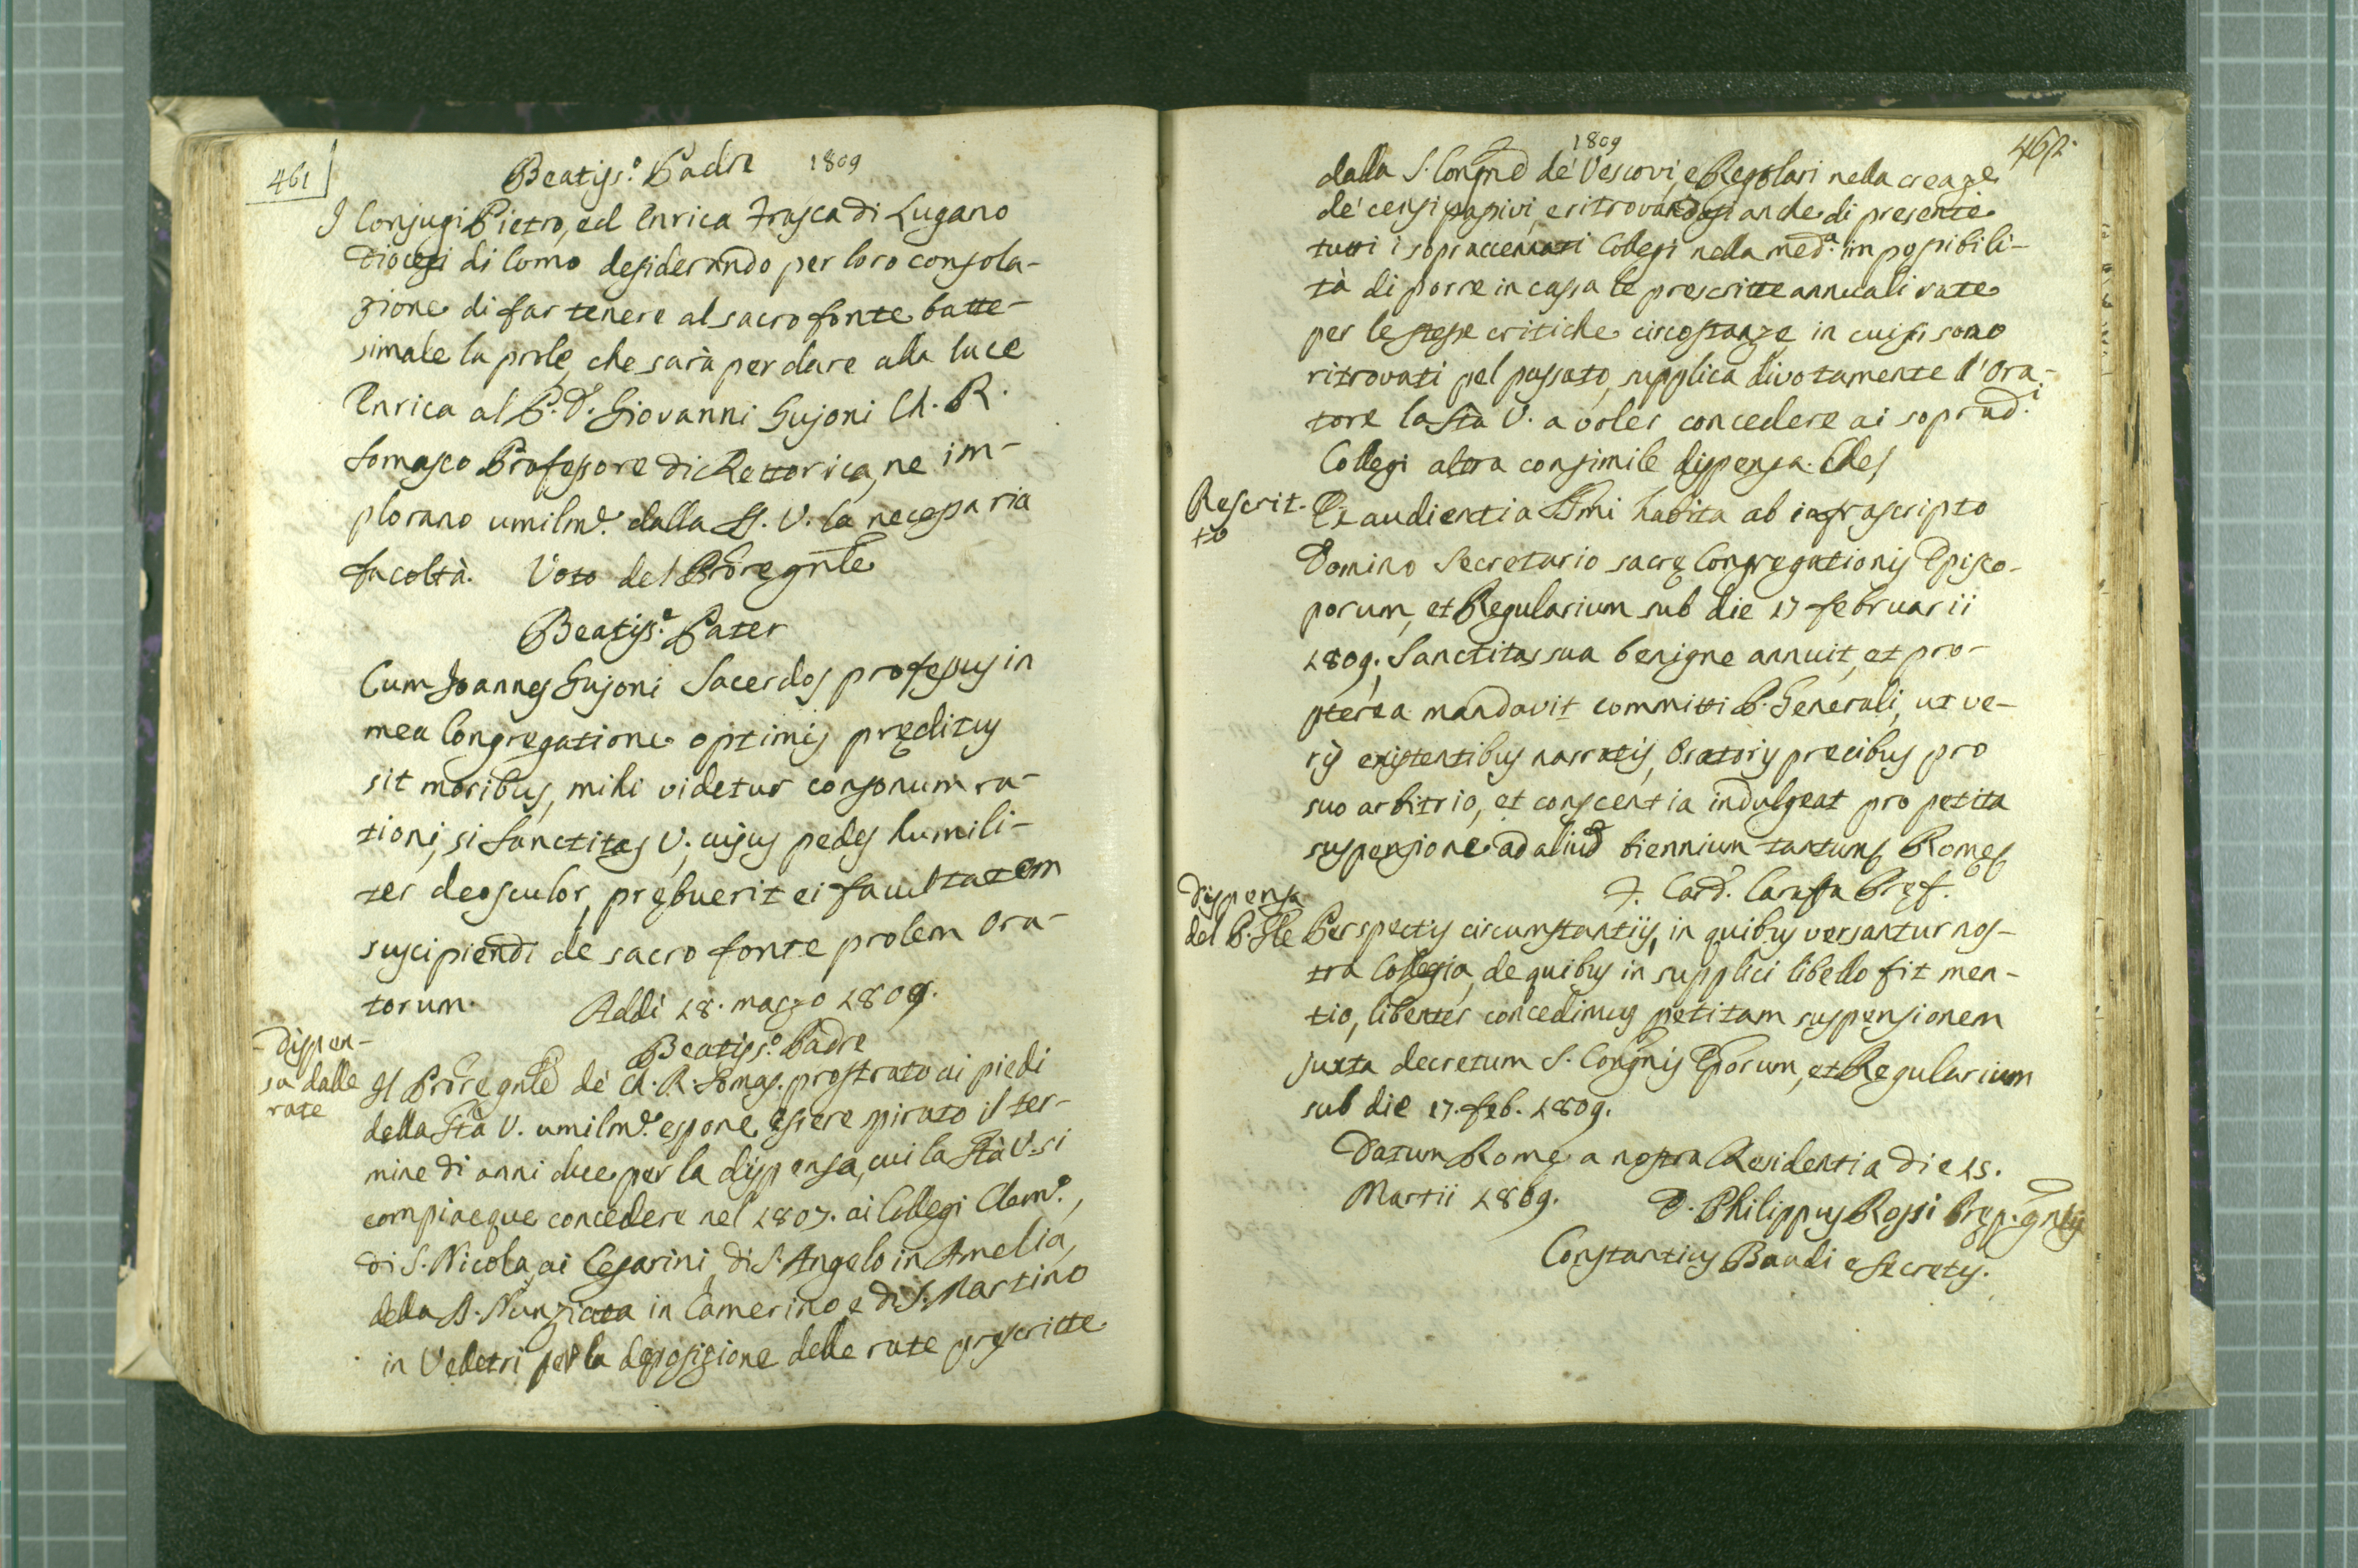 461
Beatiss.º Padre 1809
I Conjugi Pietro, ed Enrica Frasca di Lugano
Diocesi di Como desiderando per loro consola-
zione di far tenere al sacro fonte batte-
simale la prole, che sarà per dare alla luce
Enrica al P. D. Giovanni Gujoni Ch. R.
Somasco Professore di Rettorica, ne im-
plorano umilmᵉ. dalla S. V. la necessaria
facoltà. Voto del Prore gnle
Beatiss.ᵉ Pater
Cum Joannes Gujoni Sacerdos professus in
mea Congregatione optimis pręditus
sit moribus, mihi videtur consonum ra-
tioni, si Sanctitas V., cujus pedes humili-
ter deosculor, prębuerit ei facultatem
suscipiendi de sacro fonte prolem Ora-
torum. Addì 18. marzo 1809.
Dispen-
sa dalle
rate
Beatiss.º Padre
Il Prore gnle de' Ch. R. Somas. prostrato ai piedi
della Stà V. umilmᵉ. espone essere spirato il ter-
mine di anni due per la dispensa, cui la Stà V. si
compiacque concedere nel 1807. ai Collegi Clemº.,
di S. Nicola, ai Cesarini, di S. Angelo in Amelia,
della SS. Nunziata in Camerino, e di S. Martino
in Velletri per la deposizione delle rate prescritte
1809
462
dalla S. Congne de' Vescovi, e Regolari nella creaze
de' censi passivi, e ritrovandosi anche di presente
tutti i sopraccennati Collegi nella medª. impossibili-
tà di porre in cassa le prescritte annuali rate
per le stesse critiche circostanze in cui si sono
ritrovati pel passato, supplica divotamente l'Ora-
tore la Stà V. a voler concedere ai sopradⁱ.
Collegi altra consimile dispensa. Ches
Rescrit-
to
Ex audientia SSmi habita ab infrascripto
Domino Secretario sacrę Congregationis Episco-
porum, et Regularium sub die 17 februarii
1809. Sanctitas sua benigne annuit, et pro-
pterea mandavit committi P. Generali, ut ve-
ris existentibus narratis, Oratoris precibus pro
suo arbitrio, et conscentia indulgeat pro petita
suspensione ad aliud biennium tantum Romę
F. Card. Caraffa Pręf.
Dispensa
del P. Gle
Perspectis circumstantiis, in quibus versantur nos-
tra Collegia, de quibus in supplici libello fit men-
tio, libenter concedimus petitam suspensionem
juxta decretum S. Congnis Eporum, et Regularium
sub die 17. feb. 1809.
Datum Romę a nostra Residentia die 15.
Martii 1809. D. Philippus Rossi Pręp. gnlis
Constantius Baudi e Secretis.